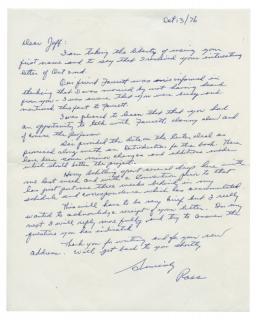 Oct 13/76
Dear Jeff:
I am taking the liberty of using your
first name and to say that I received your interesting
letter of Oct 2nd.
Our friend Jarrett was misinformed in
thinking that I was annoyed by not having heard
from you. I was aware that you were busy and
mentioned the fact to Jarrett.
I was pleased to learn that you had
an opportunity to talk with Jarrett,
has provided the
along with the Introduction to the book. There
have been some minor changes and additions made
which should better the
Harry spent several days here with
me last week and with a Convention prior to that
has just put me three weeks behind in my
schedule and correspondence which has accumulated.
This will have to be very brief but I really
wanted to acknowledge receipt of your letter. In my
next I will reply more fully and try to answer the
questions you has
Thank you for writing and for your new
address. Will get back to you shortly.
Sincerely
Ross